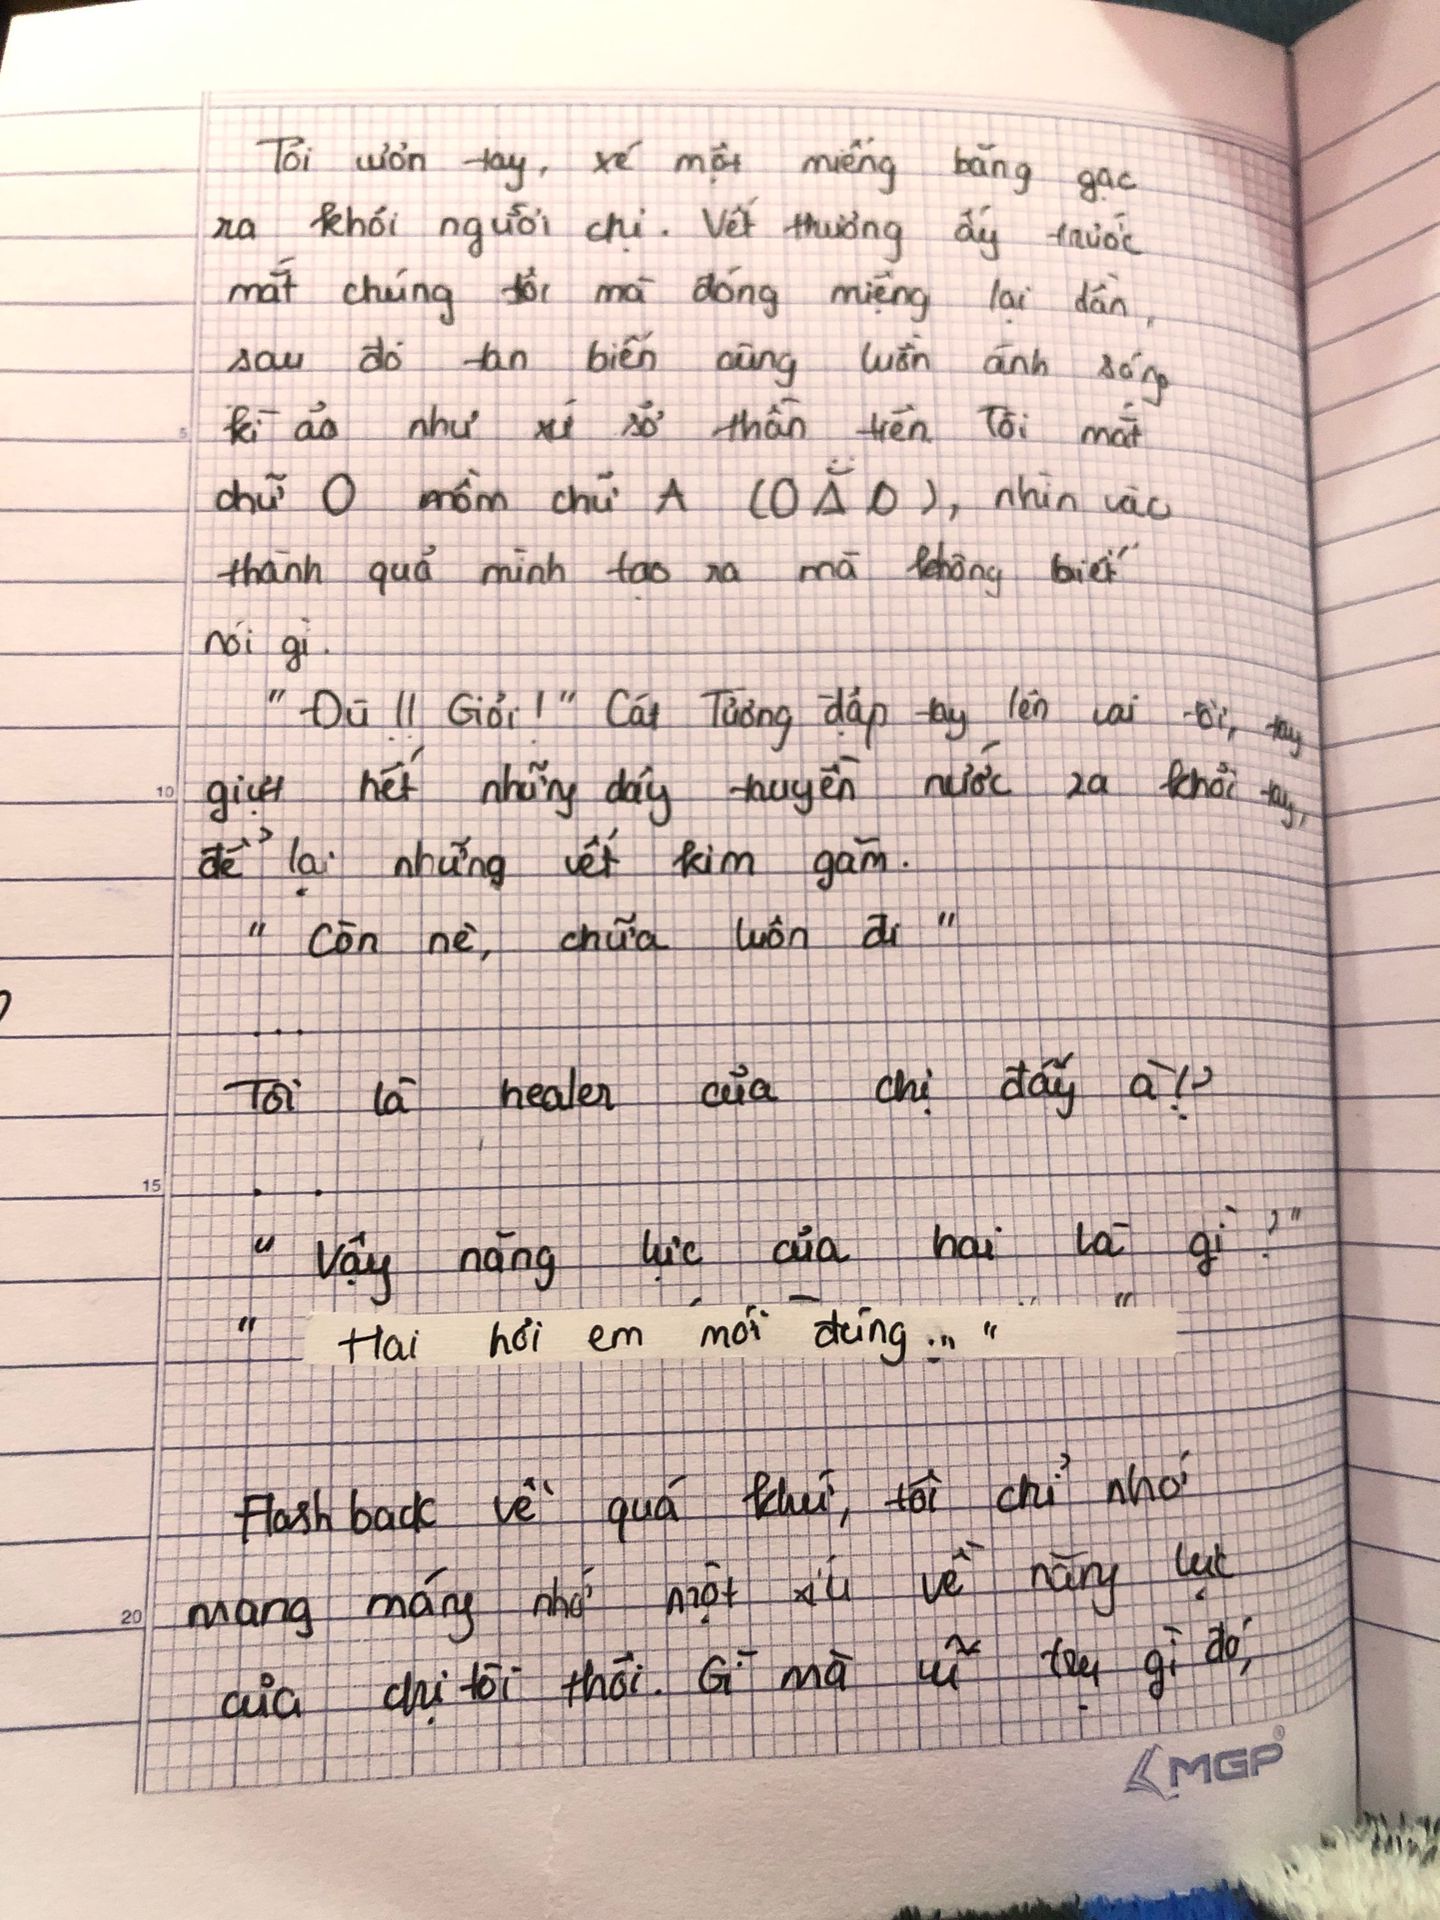 Tôi vươn tay, xé một miếng băng gạc
ra khỏi người chị. Vết thương ấy trước
mắt chúng tôi mà đóng miệng lại dần,
sau đó tan biến cùng luồn ánh sáng
kì ảo như xứ sở thần tiên. Tôi mắt
chữ O mồm chữ A (O Ä O), nhìn vào
thành quả mình tạo ra mà không biết
nói gì.
"Đù!! Giỏi!" Cát Tường đập tay lên vai tôi, tay
giựt hết những dây truyền nước ra khỏi tay,
để lại những vết kim găm.
"Còn nè, chữa luôn đi"
...
Tôi là healer của chị đấy à!?
. .
"Vậy năng lực của hai là gì?"
" Hai hỏi em mới đúng..."
Flashback về quá khứ, tôi chỉ nhớ
mang máng nhớ một xíu về năng lực
của chị tôi thôi. Gì mà vũ trụ gì đó,
MGP
5
10
15
20